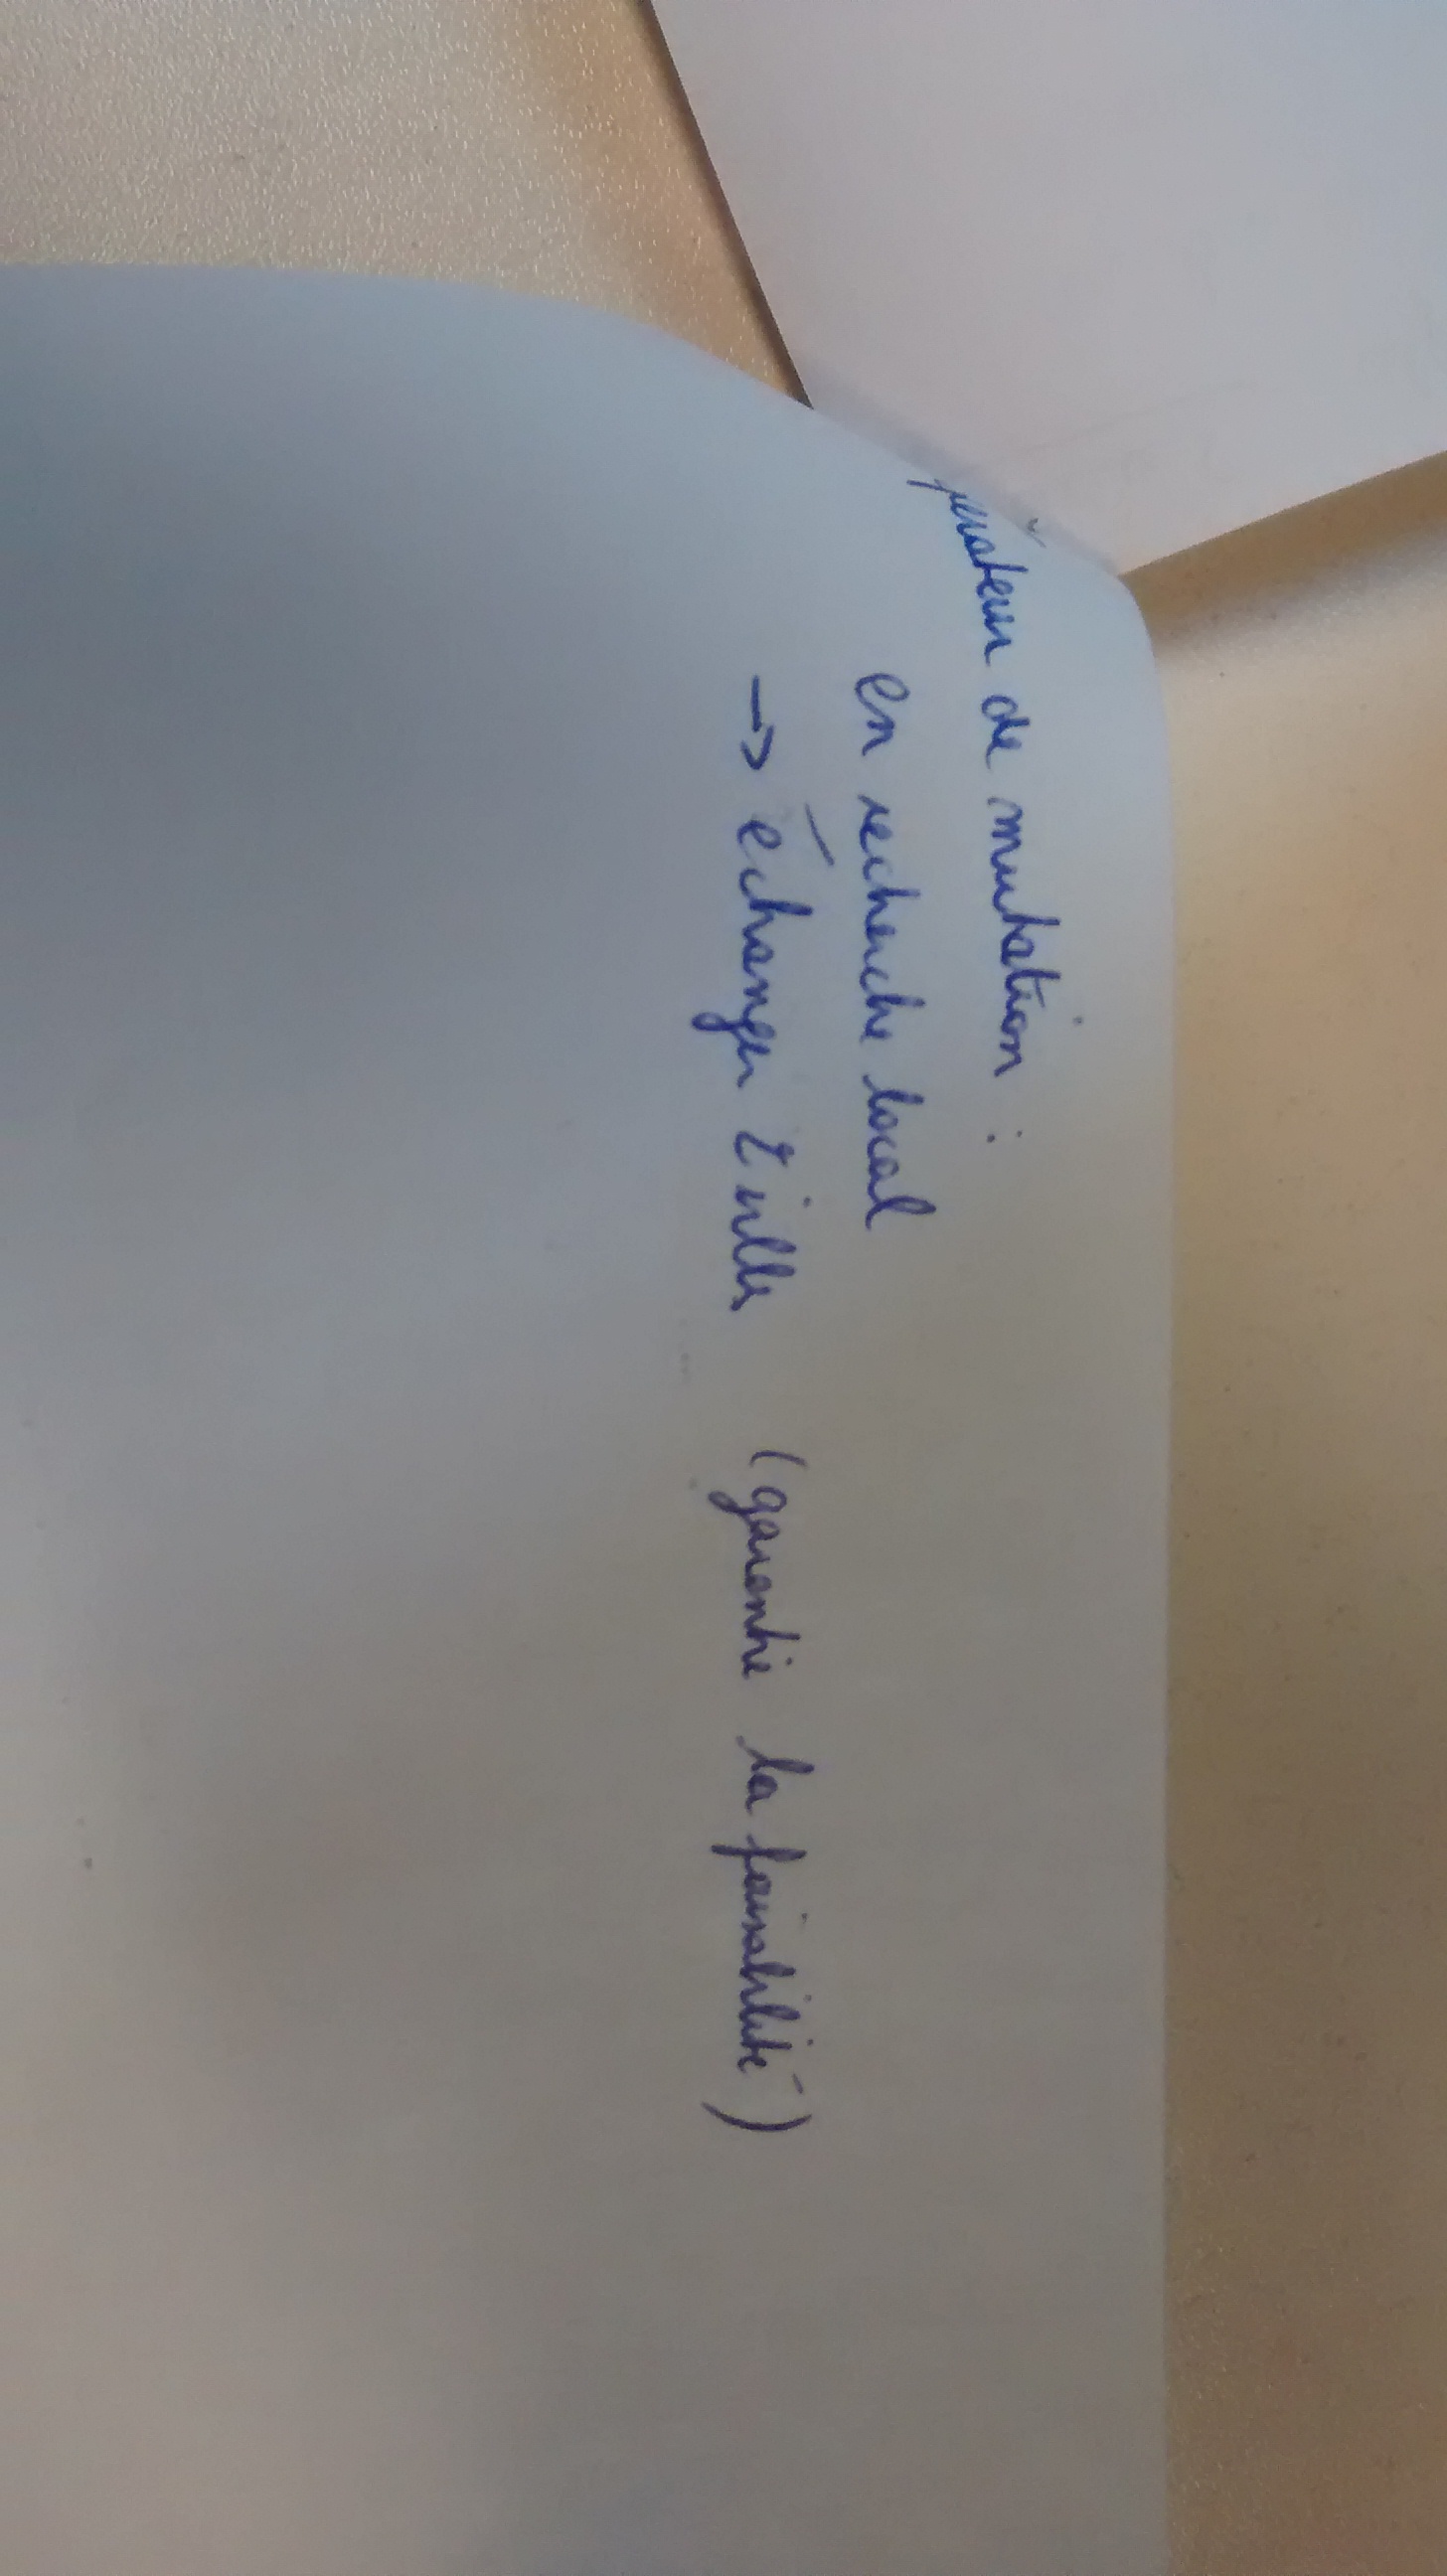 pérateur de mutation :
en recherche local
→ échanger 2 villes (garantie la faisabilité)